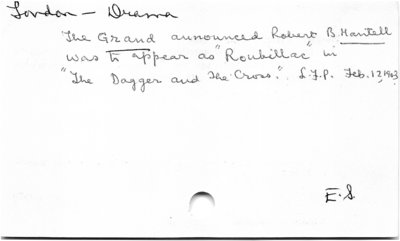 London - Drama
The Grand announced Robert B. Mantell
was to appear as "Roubillac" in
"The Dagger and the Cross." L.F.P. Feb. 12, 1903
E.S.